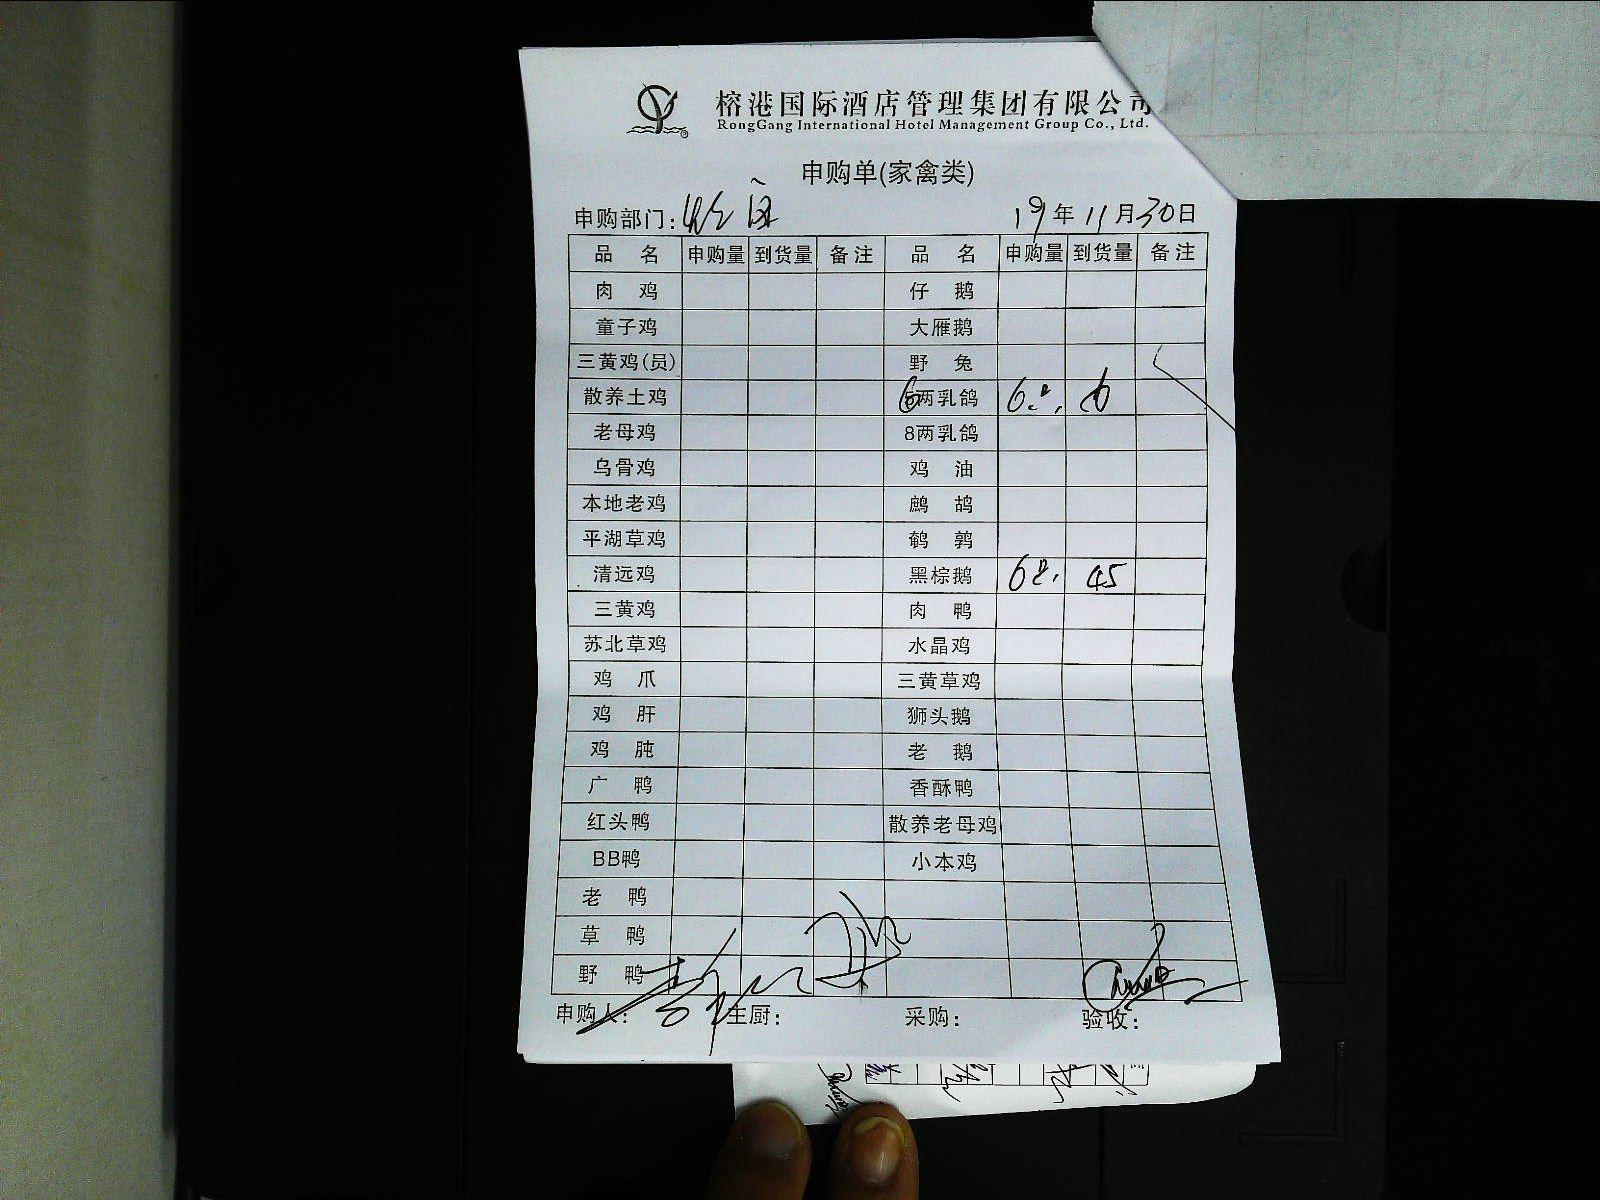 榕港国际酒店管理集团有限公司
RongGang International Hotel Management Group Co., Ltd.
申购单(家禽类)
申购部门: 19年11月30日
品名 申购量 到货量 备注 品名 申购量 到货量 备注
肉鸡 仔鹅
童子鸡 大雁鹅
三黄鸡(员) 野兔
散养土鸡 6两乳鸽 6 6
老母鸡 8两乳鸽
乌骨鸡 鸡油
本地老鸡 鹧鸪
平湖草鸡 鹌鹑
清远鸡 黑棕鹅 6 45
三黄鸡 肉鸭
苏北草鸡 水晶鸡
鸡爪 三黄草鸡
鸡肝 狮头鹅
鸡肫 老鹅
广鸭 香酥鸭
红头鸭 散养老母鸡
BB鸭 小本鸡
老鸭
草鸭
野鸭
申购人: 主厨: 采购: 验收: